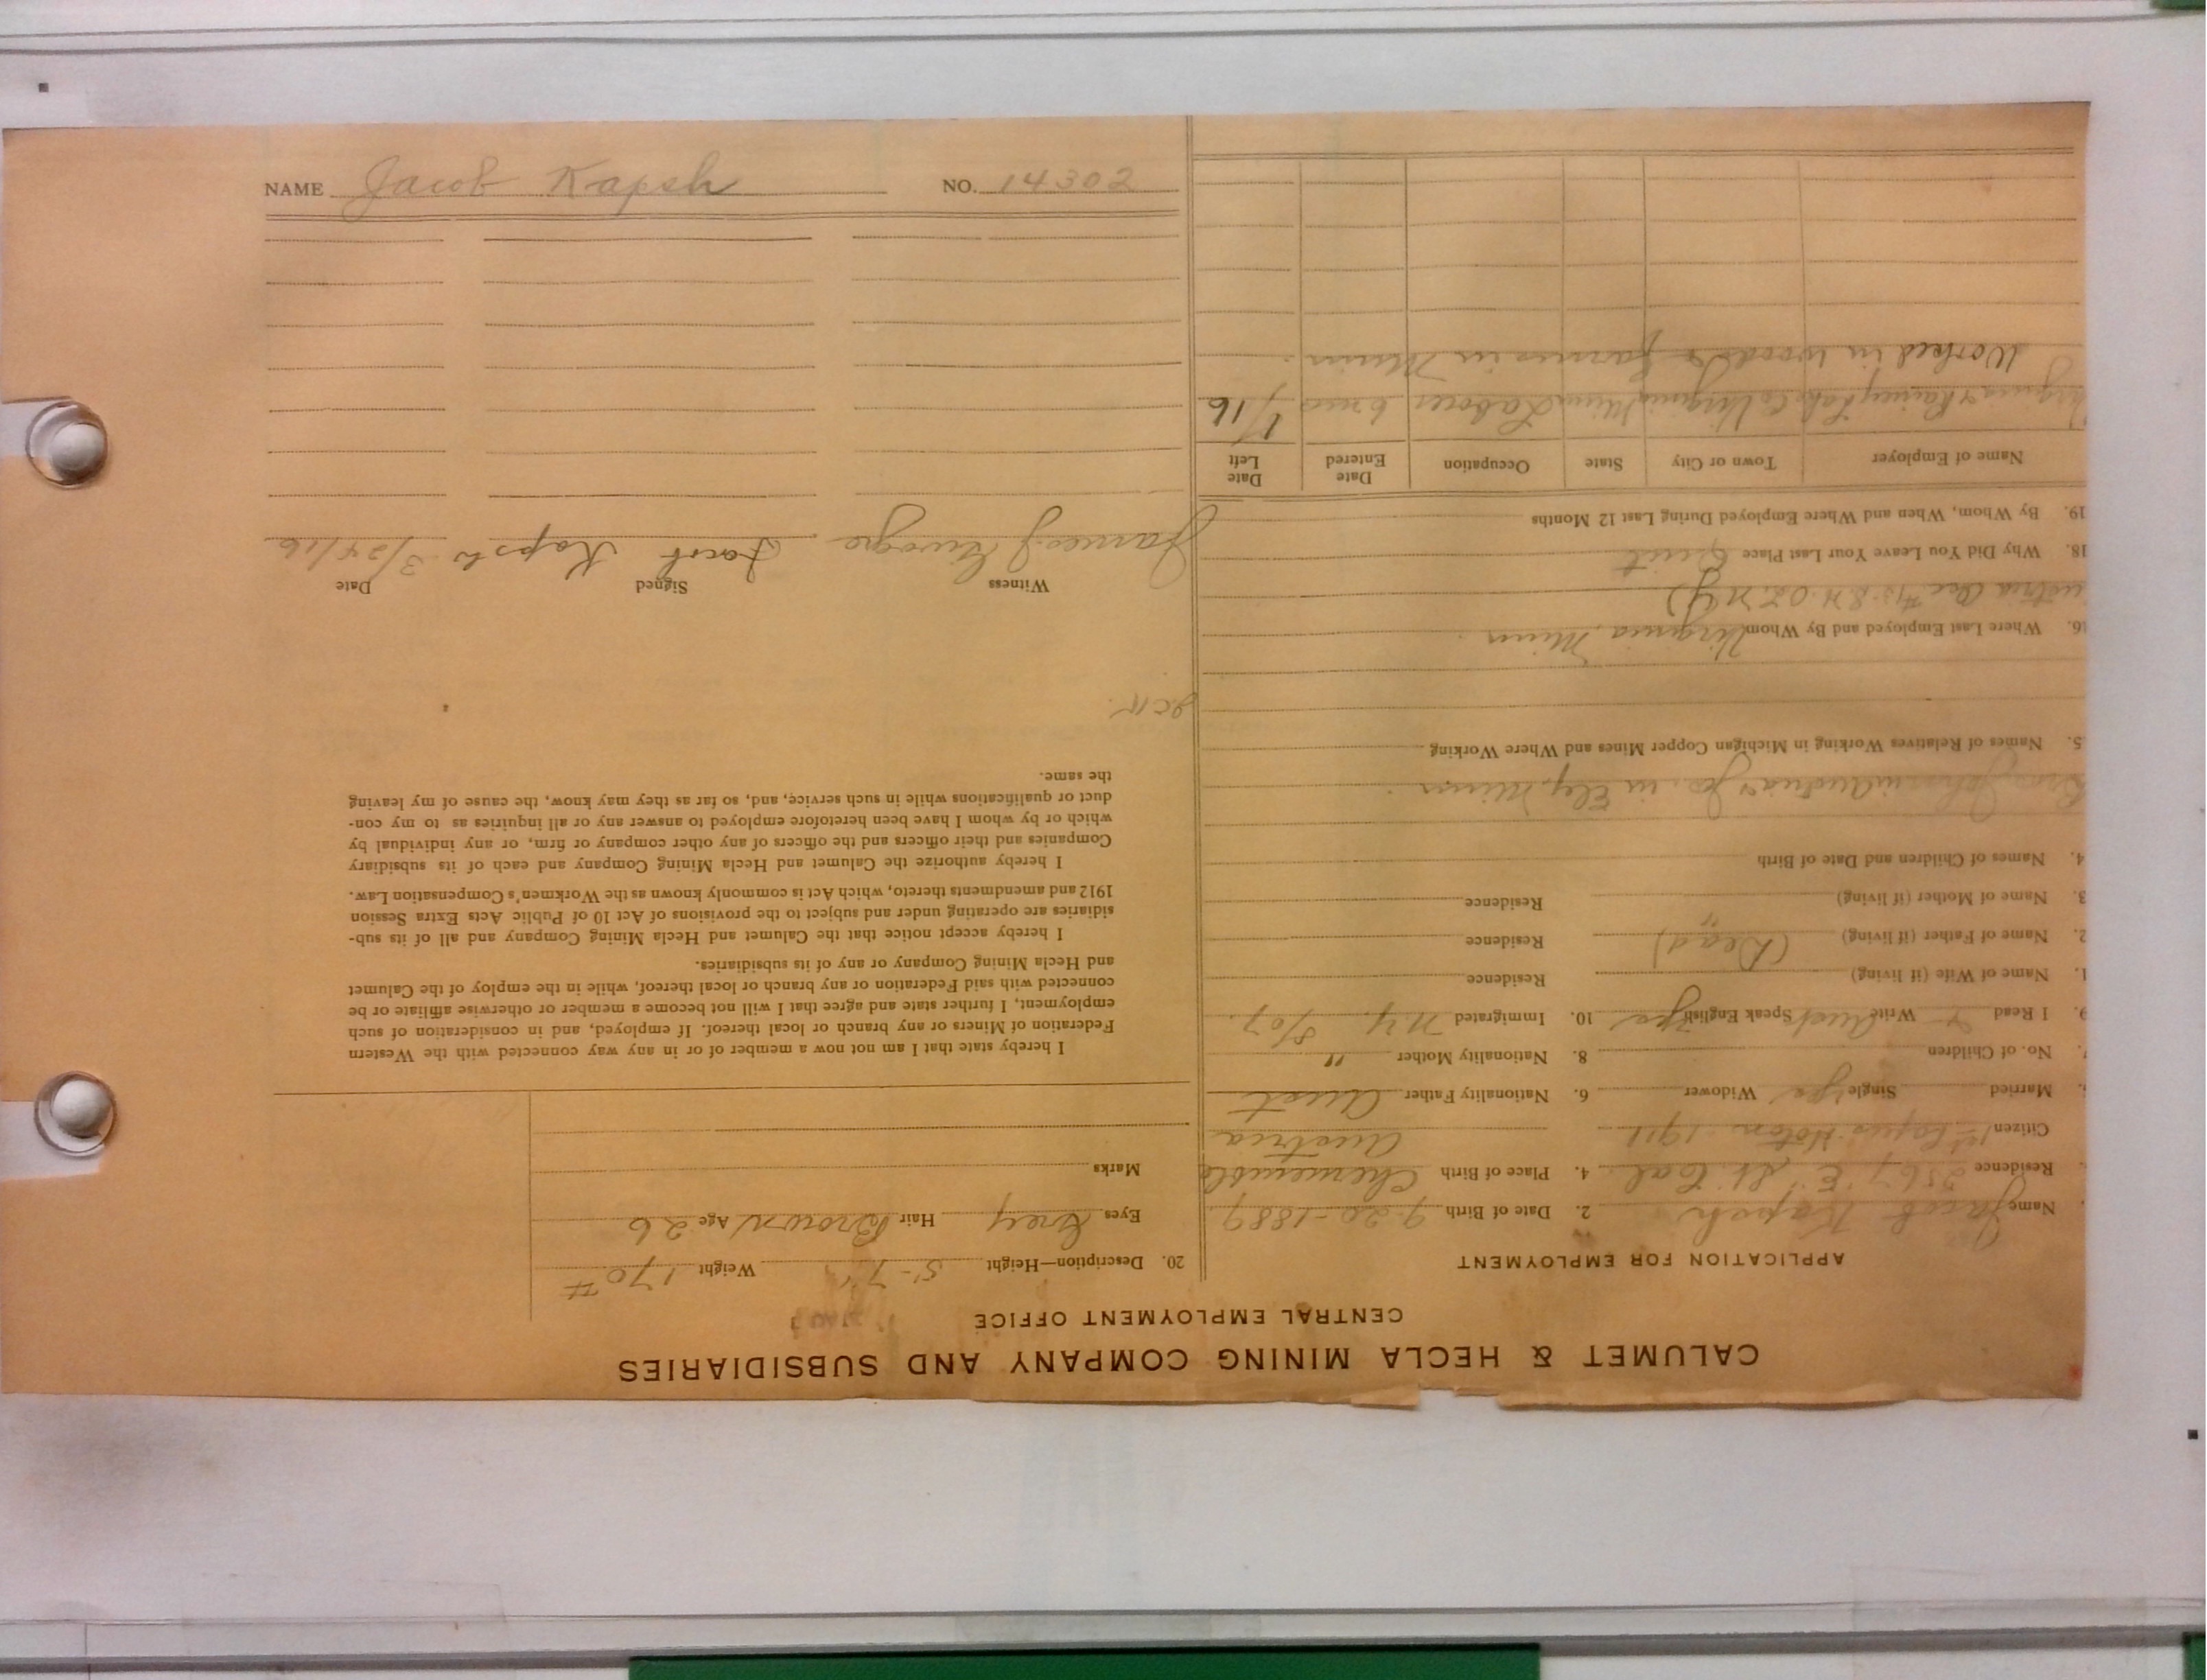 NAME Jacob Kapsh NO. 14302
CALUMET & HECLA MINING COMPANY AND SUBSIDIARIES
CENTRAL EMPLOYMENT OFFICE
APPLICATION FOR EMPLOYMENT
Name Jacob Kapsh 2. Date of Birth 9-20-1889
Residence E St. Cal. 4. Place of Birth
Austria
Citizen 1st 1911
Married Single yes Widower 6. Nationality Father Aust
No. of Children 8. Nationality Mother "
9. I Read Write Aust Speak English yes 10. Immigrated N.Y. 8/07.
1. Name of Wife (if living) Residence
2. Name of Father (if living) (Dead) Residence
3. Name of Mother (if living) " Residence
4. Names of Children and Date of Birth
John in Austria Jos. in Ely, Minn.
5. Names of Relatives Working in Michigan Copper Mines and Where Working
16. Where Last Employed and By Whom Virginia, Minn.
18. Why Did You Leave Your Last Place Quit
19. By Whom, When and Where Employed During Last 12 Months
Name of Employer Town or City State Occupation Date Entered Date Left
Virginia & Rainey Lake Co Virginia Minn Laborer 6 mos 1/16
Worked in woods & farms in Minn.
20. Description—Height 5-7" Weight 170#
Eyes Grey Hair Brown Age 26
Marks
I hereby state that I am not now a member of or in any way connected with the Western
Federation of Miners or any branch or local thereof. If employed, and in consideration of such
employment, I further state and agree that I will not become a member or otherwise affiliate or be
connected with said Federation or any branch or local thereof, while in the employ of the Calumet
and Hecla Mining Company or any of its subsidiaries.
I hereby accept notice that the Calumet and Hecla Mining Company and all of its sub-
sidiaries are operating under and subject to the provisions of Act 10 of Public Acts Extra Session
1912 and amendments thereto, which Act is commonly known as the Workmen's Compensation Law.
I hereby authorize the Calumet and Hecla Mining Company and each of its subsidiary
Companies and their officers and the officers of any other company or firm, or any individual by
which or by whom I have been heretofore employed to answer any or all inquiries as to my con-
duct or qualifications while in such service, and, so far as they may know, the cause of my leaving
the same.
Witness Signed Date
James J Jacob Kapsh 3/24/16